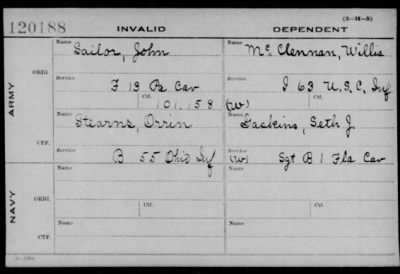 (3-H-3)
120188 INVALID DEPENDENT
Name Name
Sailor, John Mc Clennan, Willis
ORIG.
Service Service
F 13 Pa Cav I 63 U.S.C. Inf
ARMY
Ctf. Ctf.
101,158 (W)
Name Name
Stearns, Orrin Gaskins, Seth J
CTF.
Service Service
B 55 Ohio Inf (W) Sgt B 1 Fla Cav
Name Name
ORIG.
NAVY
Ctf. Ctf.
Name Name
CTF.